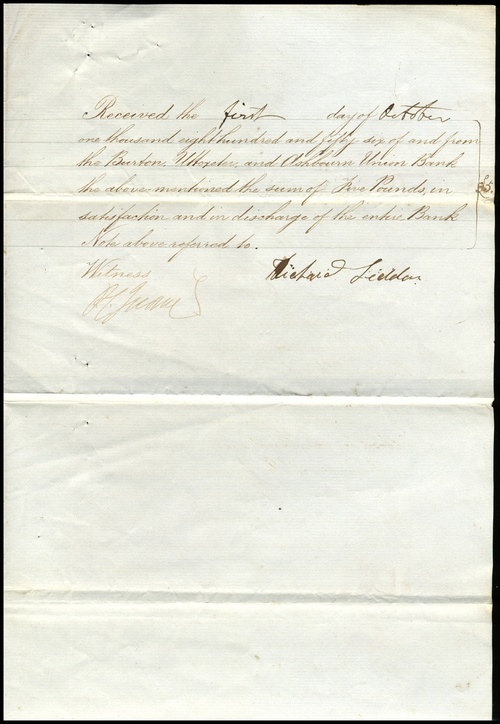 Received the first day of October
one thousand eight hundred and fifty six of and from
the Burton, Uttoxeter, and Ashbourn Union Bank
the above mentioned the sum of Five Pounds, in £5.
satisfaction and in discharge of the entire Bank
Note above referred to.
Witness Richard Liddon.